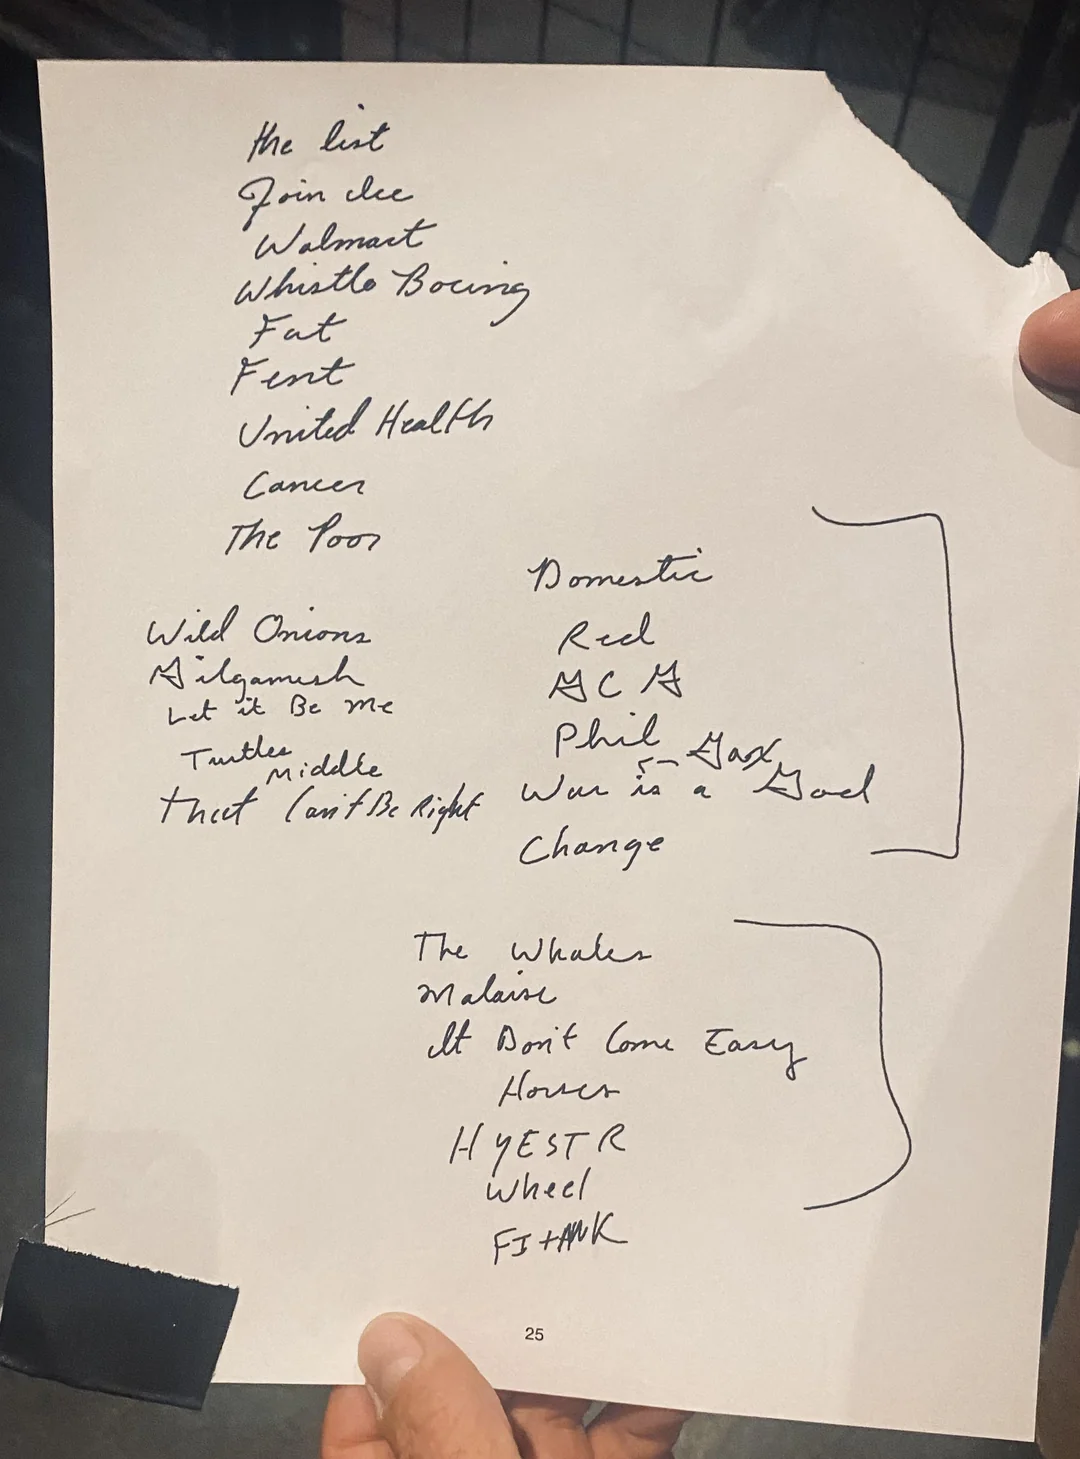 the list
Join Ice
Walmart
Whistle Boeing
Fat
Fent
United Health
Cancer
The Poor
Wild Onions
Gilgamesh
Let it Be Me
Turtles
Middle
That Can't Be Right
Domestic
Red
G C G
Phil
Gax
War is a God
Change
The Whales
Malaise
It Don't Come Easy
Horses
H YEST R
Wheel
25